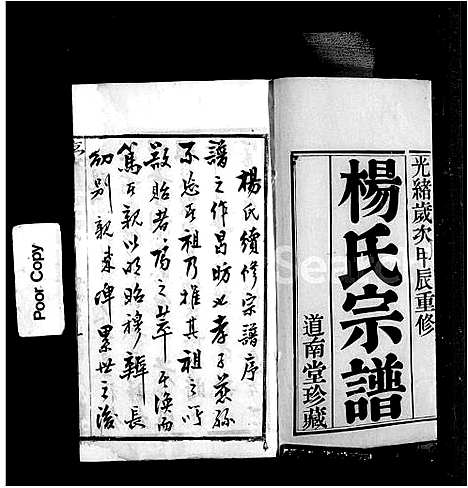 光緒歲次甲辰重修
楊氏宗譜
道南堂珍藏
楊氏續修宗譜序
譜之作昌昉也孝子慈孫
不忘其祖乃推其祖之所
詒者為之萃其渙而
篤其親以明昭穆辨長
幼別親疎俾累世之後
Poor Copy